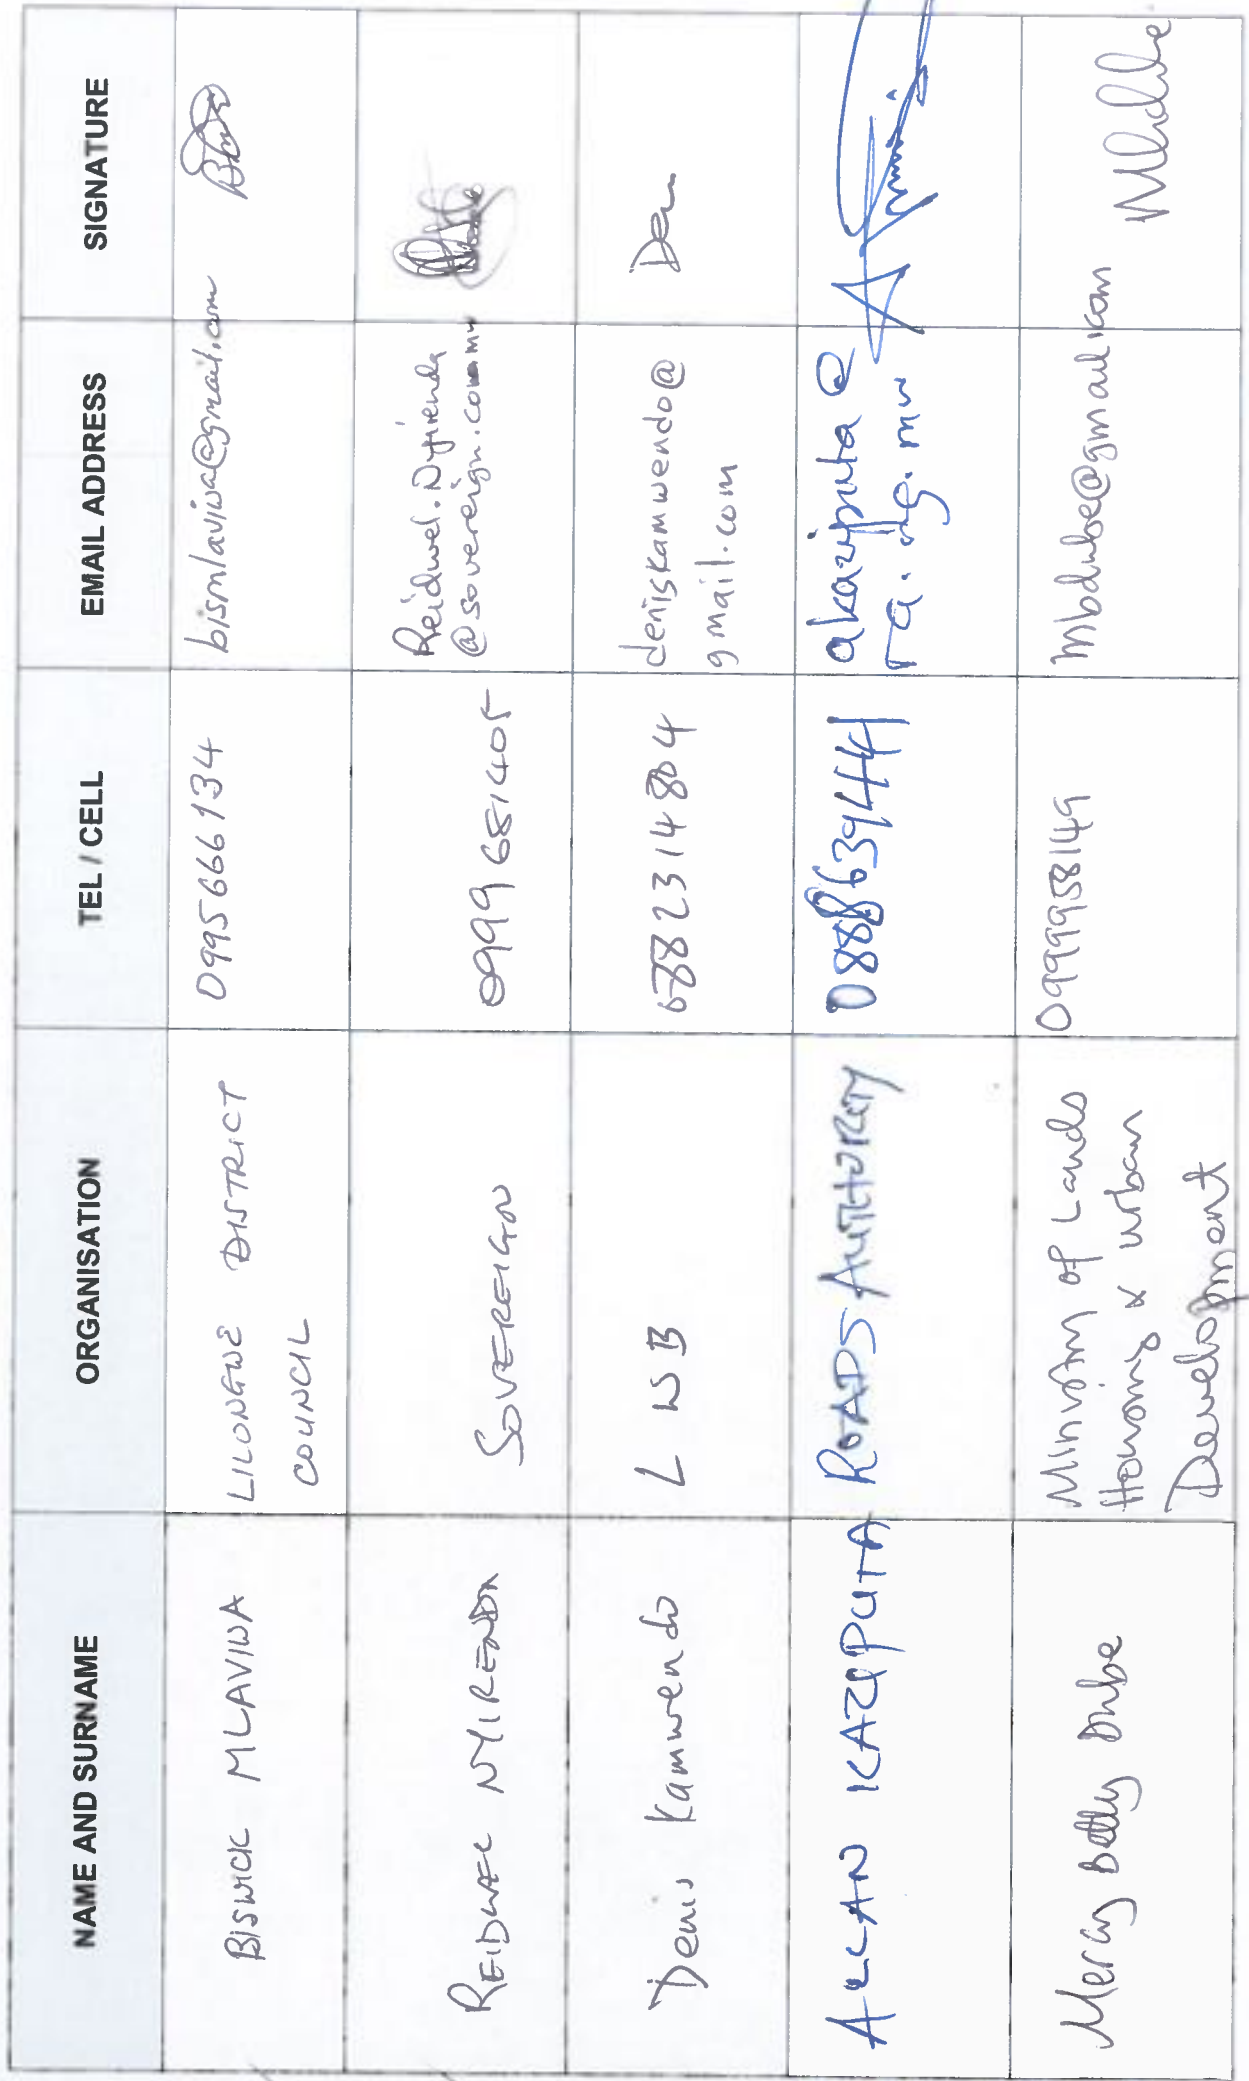 NAME AND SURNAME ORGANISATION TEL / CELL EMAIL ADDRESS SIGNATURE
BISWICK MLAVIWA LILONGWE DISTRICT COUNCIL 0995666134 bismlaviwa@gmail.com
REIDWEL NYIRENDA SOVEREIGN 0999681405 Reidwel.Nyirenda
@sovereign.co.mw
Denis Kamwendo LWB 0882314804 deniskamwendo@
gmail.com Den
ALLAN KAZIPUTA ROADS AUTHORITY 0888639441 akaziputa@
ra.org.mw
Mercy Betty Dube Ministry of Lands
Housing & Urban
Development 0999958149 mbdube@gmail.com